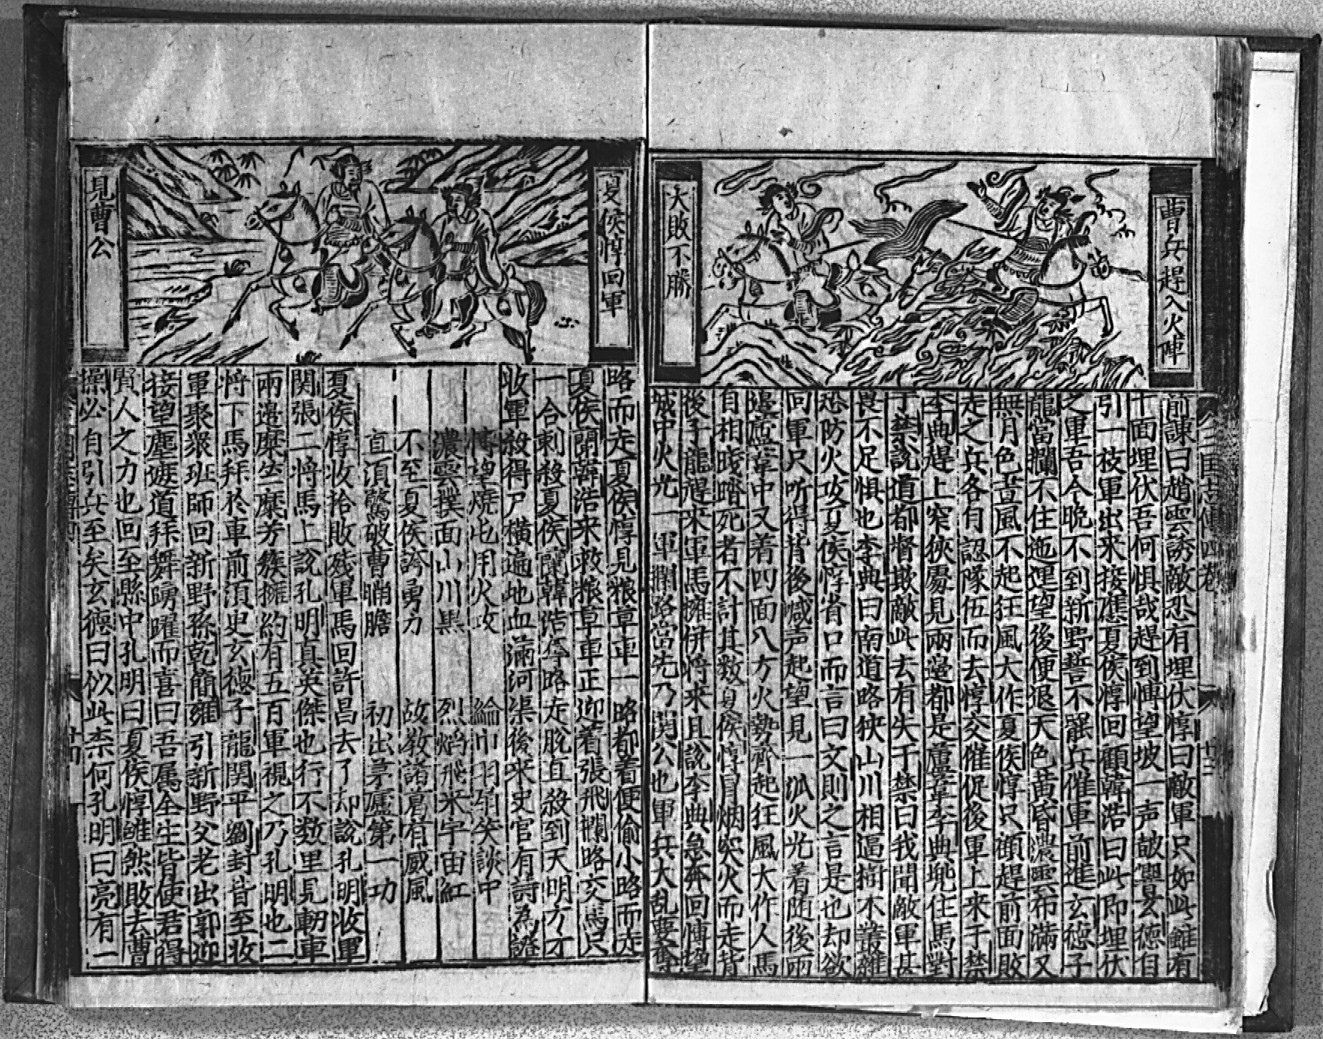 曹兵趕入火陣
大敗不勝
前諫曰趙雲誘敵恐有埋伏惇曰敵軍只如此雖有
十面埋伏吾何惧哉趕到博望坡一声砲響玄德自
引一枝軍出來接應夏侯惇回顧韓浩曰此即埋伏
之軍吾今晚不到新野誓不罷兵催軍前進玄德子
龍當攔不住迤逗望後便退天色黃昏濃雲布滿又
無月色晝風不起狂風大作夏侯惇只顧趕前面敗
走之兵各自認隊伍而去惇交催促後軍上來于禁
李典趕上窄狹處見兩邊都是蘆葦李典兜住馬對
于禁說道都督欺敵此去有失于禁曰我聞敵軍甚
畏不足惧也李典曰南道路狹山川相逼樹不叢雜
恐防火攻夏侯惇省口而言曰文則之言是也却欲
回軍只听得背後喊声起望見一派火光着随後兩
邊蘆葦中又着四面八方火勢齊起狂風大作人馬
自相踐踏死者不計其数夏侯惇冒烟突火而走背
後子龍趕來軍馬擁併將來且說李典急奔回博望
城中火光一軍攔路當先乃関公也軍兵大乱
夏侯惇回軍
見曹公
路而走夏侯惇見粮草車一路都着便偷小路而走
夏侯蘭韓浩來救粮草車正迎着張飛攔路交馬只
一合刺殺夏侯蘭韓浩奪路走脫直殺到天明方才
收軍殺得尸橫遍地血滿河渠後來史官有詩為證
博望燒屯用火攻　綸巾羽扇笑談中
濃雲撲面山川黑　烈焰飛來宇宙紅
不至夏侯誇勇力　故教諸葛有威風
直須驚破曹瞞膽　初出茅廬第一功
夏侯惇收拾敗殘軍馬回許昌去了却說孔明收軍
関張二將馬上說孔明真英傑也行不数里見軔車
兩邊糜竺糜芳簇擁約有五百軍視之乃孔明也二
將下馬拜於車前須臾玄德子龍関平劉封皆至收
軍聚衆班師回新野孫乾簡雍引新野父老出郭迎
接望塵遮道拜舞踴躍而喜曰吾属全生皆使君得
賢人之力也回至縣中孔明曰夏侯惇雖然敗去曹
操必自引兵至矣玄德曰似此柰何孔明曰亮有一